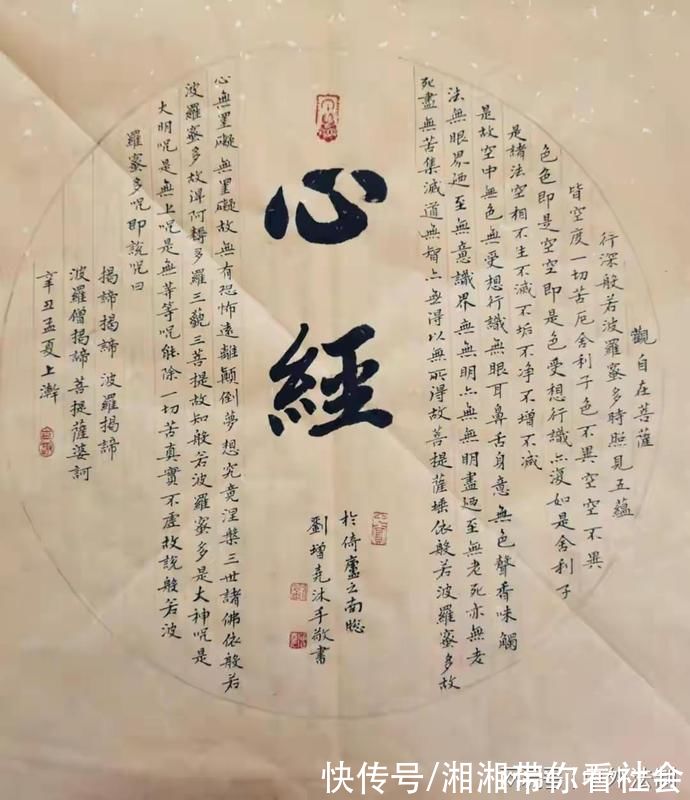 觀自在菩薩
行深般若波羅蜜多時照見五蘊
皆空度一切苦厄舍利子色不異空空不異
色色即是空空即是色受想行識亦復如是舍利子
是諸法空相不生不滅不垢不净不增不减
是故空中無色無受想行識無眼耳鼻舌身意無色聲香味觸
法無眼界迺至無意識界無無明亦無無明盡迺至無老死亦無老
死盡無苦集滅道無智亦無得以無所得故菩提薩埵依般若波羅蜜多故
心經
於倚廬之南牕
劉增尭沐手敬書
心無罣礙無罣礙故無有恐怖遠離顛倒夢想究竟涅槃三世諸佛依般若
波羅蜜多故得阿耨多羅三藐三菩提故知般若波羅蜜多是大神呪是
大明呪是無上呪是無等等呪能除一切苦真實不虛故說般若波
羅蜜多呪即說呪曰
揭諦揭諦 波羅揭諦
波羅僧揭諦菩提薩婆訶
辛丑孟夏上澣
快传号/湘湘带你看社会